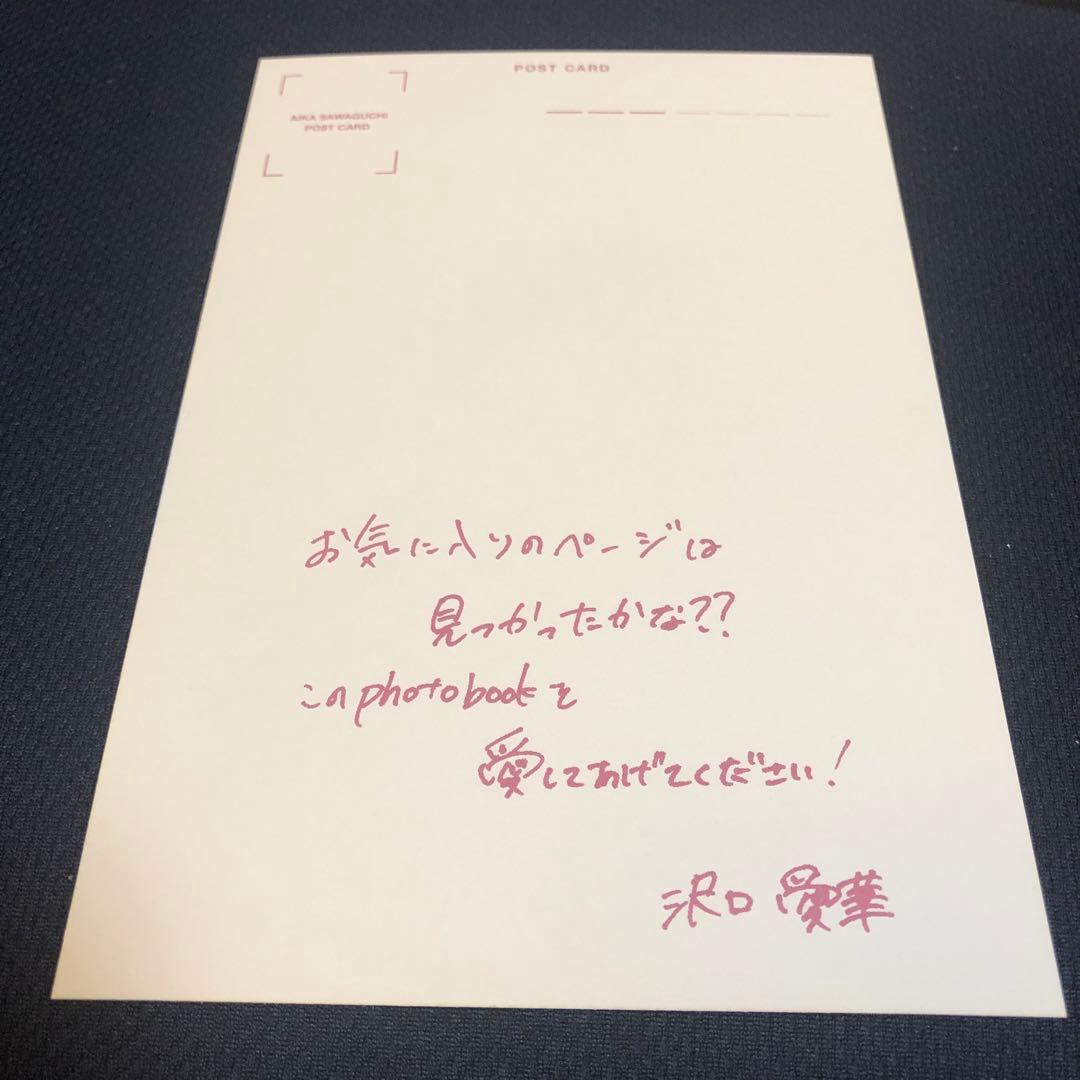 POST CARD
AIKA SAWAGUCHI
POST CARD
お気に入りのページは
見つかったかな??
このphotobookを
愛してあげてください!
沢口愛華